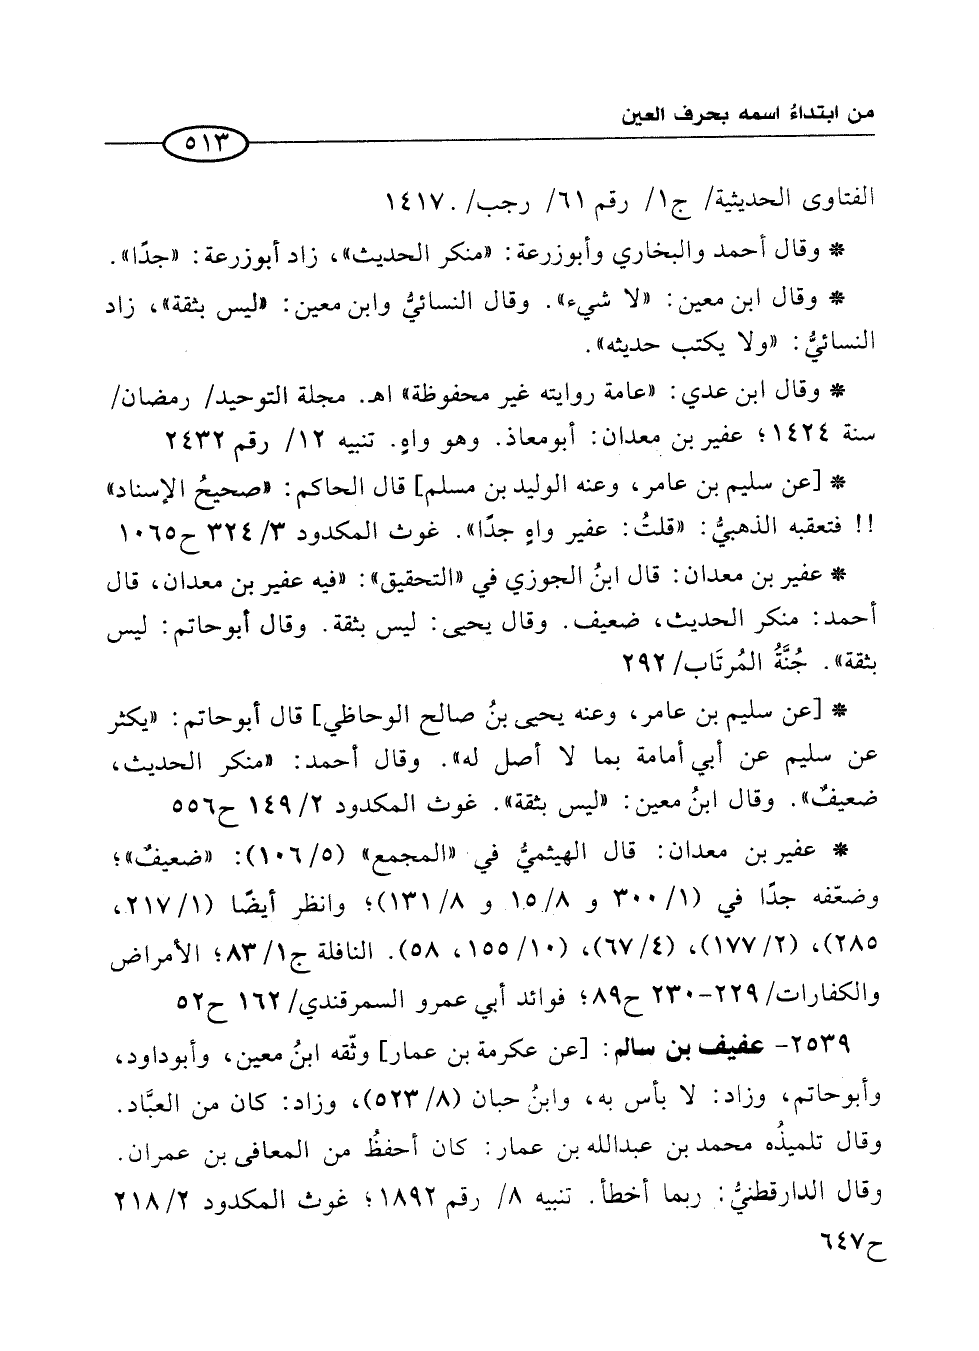 من ابتداءُ اسمه بحرف العين
٥١٣
الفتاوى الحديثية/ ج١/ رقم ٦١/ رجب/ ١٤١٧.
* وقال أحمد والبخاري وأبوزرعة: «منكر الحديث»، زاد أبوزرعة: «جدًا».
* وقال ابن معين: «لا شيء». وقال النسائيُّ وابن معين: «ليس بثقة»، زاد
النسائيُّ: «ولا يكتب حديثه».
* وقال ابن عدي: «عامة روايته غير محفوظة» اهـ. مجلة التوحيد/ رمضان/
سنة ١٤٢٤؛ عفير بن معدان: أبومعاذ. وهو واهٍ. تنبيه ١٢/ رقم ٢٤٣٢
* [عن سليم بن عامر، وعنه الوليد بن مسلم] قال الحاكم: «صحيحُ الإسناد»
!! فتعقبه الذهبيُّ: «قلتُ: عفير واهٍ جدًا». غوث المكدود ٣/ ٣٢٤ ح١٠٦٥
* عفير بن معدان: قال ابنُ الجوزي في «التحقيق»: «فيه عفير بن معدان، قال
أحمد: منكر الحديث، ضعيف. وقال يحيى: ليس بثقة. وقال أبوحاتم: ليس
بثقة». جُنَّةُ المُرتَاب/ ٢٩٢
* [عن سليم بن عامر، وعنه يحيى بنُ صالح الوحاظي] قال أبوحاتم: «يكثر
عن سليم عن أبي أمامة بما لا أصل له». وقال أحمد: «منكر الحديث،
ضعيفٌ». وقال ابنُ معين: «ليس بثقة». غوث المكدود ٢/ ١٤٩ ح٥٥٦
* عفير بن معدان: قال الهيثميُّ في «المجمع» (٥/ ١٠٦): «ضعيفٌ»؛
وضعّفه جدًا في (١/ ٣٠٠ و ٨/ ١٥ و ٨/ ١٣١)؛ وانظر أيضًا (١/ ٢١٧،
٢٨٥)، (٢/ ١٧٧)، (٤/ ٦٧)، (١٠/ ١٥٥، ٥٨). النافلة ج١/ ٨٣؛ الأمراض
والكفارات/ ٢٢٩-٢٣٠ ح٨٩؛ فوائد أبي عمرو السمرقندي/ ١٦٢ ح٥٢
٢٥٣٩- عفيف بن سالم: [عن عكرمة بن عمار] وثّقه ابنُ معين، وأبوداود،
وأبوحاتم، وزاد: لا بأس به، وابنُ حبان (٨/ ٥٢٣)، وزاد: كان من العبَّاد.
وقال تلميذُه محمد بن عبدالله بن عمار: كان أحفظُ من المعافى بن عمران.
وقال الدارقطنيُّ: ربما أخطأ. تنبيه ٨/ رقم ١٨٩٢؛ غوث المكدود ٢/ ٢١٨
ح٦٤٧